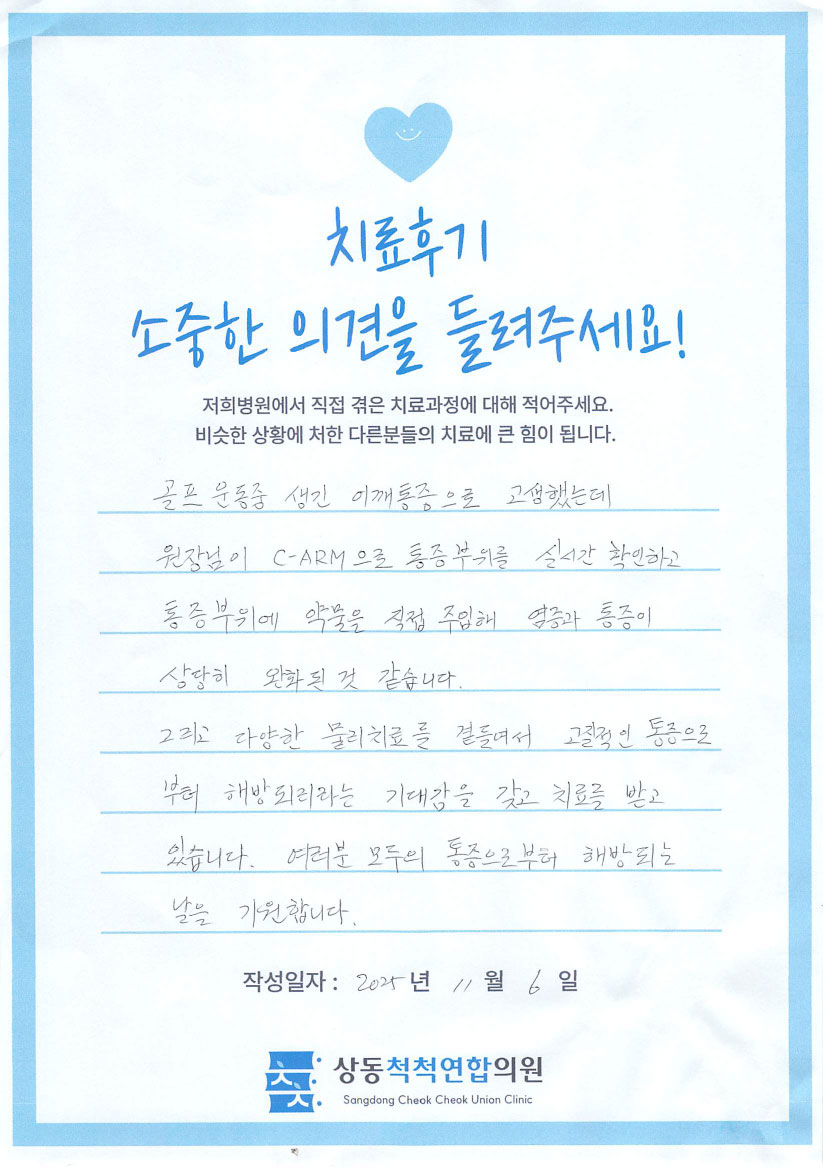 치료후기
소중한 의견을 들려주세요!
저희병원에서 직접 겪은 치료과정에 대해 적어주세요.
비슷한 상황에 처한 다른분들의 치료에 큰 힘이 됩니다.
골프 운동중 생긴 어깨통증으로 고생했는데
원장님이 C-ARM으로 통증부위를 실시간 확인하고
통증부위에 약물을 직접 주입해 염증과 통증이
상당히 완화된 것 같습니다.
그리고 다양한 물리치료를 곁들여서 고질적인 통증으로
부터 해방되리라는 기대감을 갖고 치료를 받고
있습니다. 여러분 모두의 통증으로부터 해방되는
날을 기원합니다.
작성일자 : 2025 년 11 월 6 일
상동척척연합의원
Sangdong Cheok Cheok Union Clinic